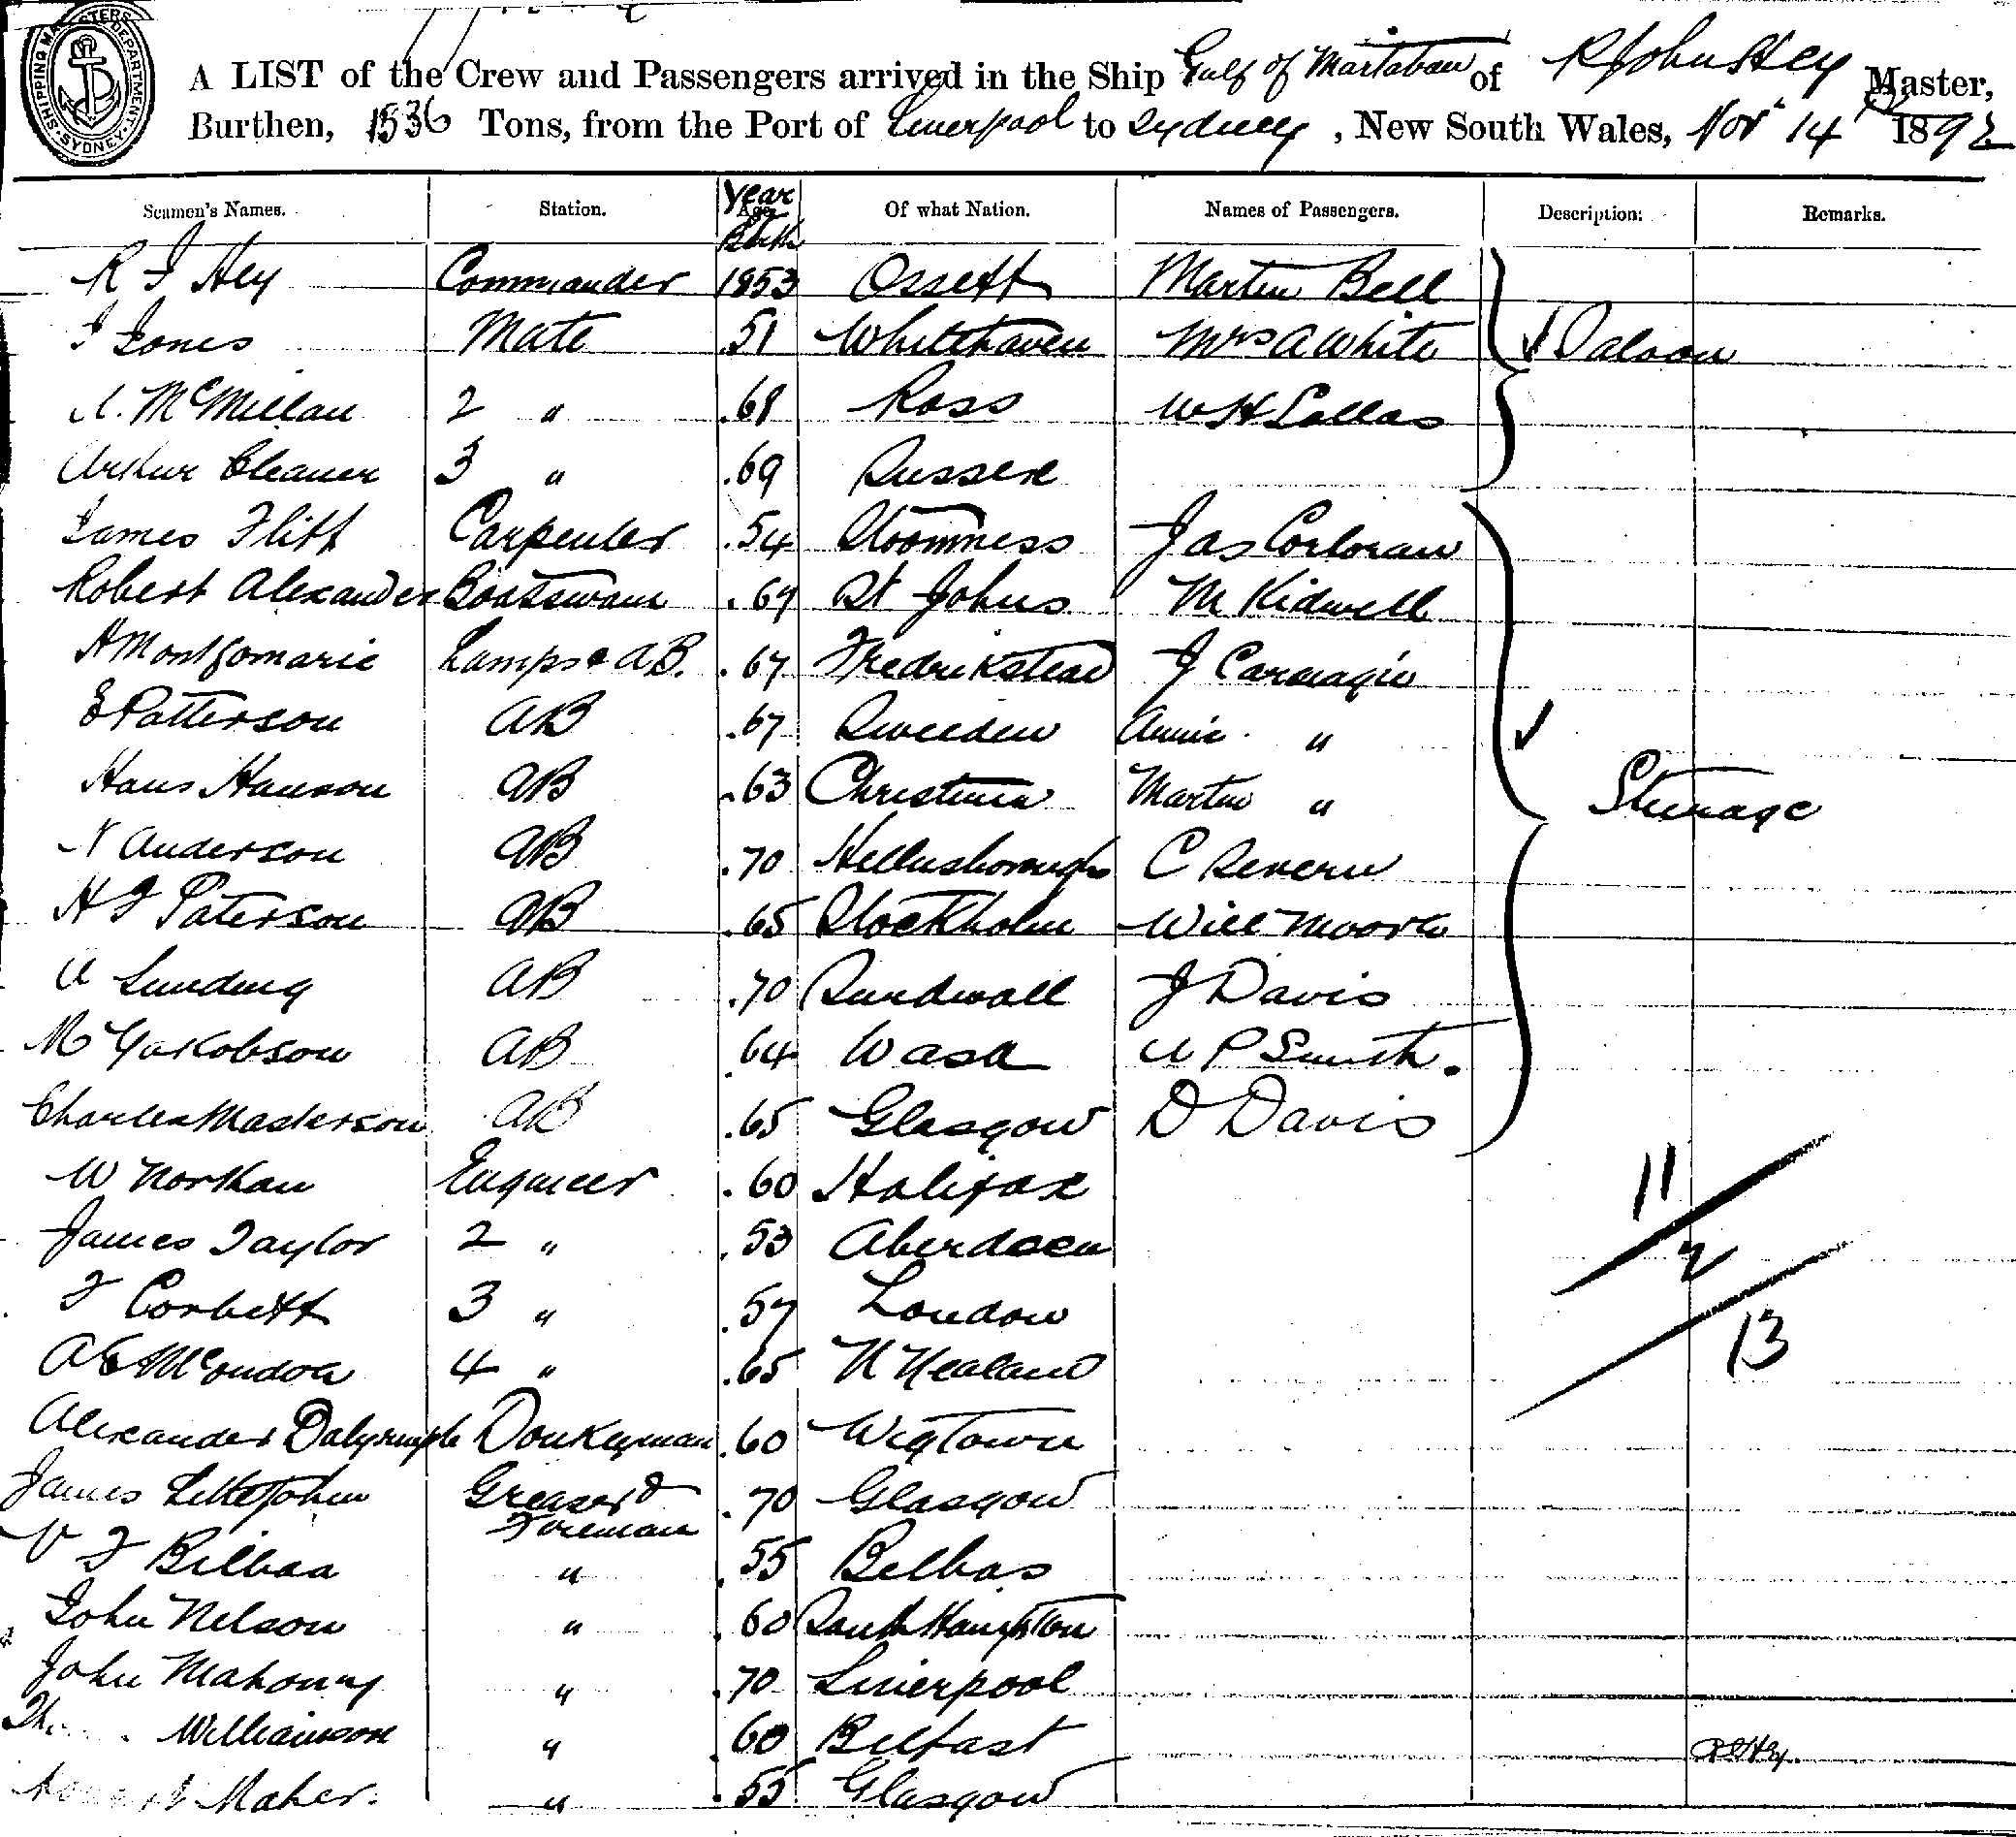 SHIPPING MASTERS DEPARTMENT SYDNEY
A LIST of the Crew and Passengers arrived in the Ship Gulf of Martaban of R John Hey Master,
Burthen, 1536 Tons, from the Port of Liverpool to Sydney, New South Wales, Nov 14 1892
Seamen's Names. Station. Year Age Birth Of what Nation. Names of Passengers. Description. Remarks.
R J Hey Commander 1853 Ossett Martin Bell
J Jones Mate 51 Whitehaven Mrs A White Saloon
McMillan 2 " .68 Ross W H Lallas
Arthur Cleaner 3 " .69 Sussex
James Flitt Carpenter .54 Stromness Jas Corloran
Robert Alexander Boatswain .69 St Johns M Kidwell
H Montgomarie Lamps & AB. .67 Fredrikstead J Carnagie
E Patterson AB .67 Sweeden Annie "
Hans Hanson AB .63 Christinia Martin " Steerage
N Anderson AB .70 Hellusborough C Severn
H J Paterson AB .65 Stockholm Will Moore
A Lunding AB .70 Sundwall J Davis
M Yakobson AB 64 Wasa A P Smith.
Charles Masterson AB .65 Glasgow D Davis
W Northan Engineer .60 Halifax
11
James Taylor 2 " .53 Aberdeen
2
F Corbett 3 " .57 London
13
A E McCondoa 4 " .65 N Zealand
Alexander Dalyrmple Donkeyman .60 Wigtown
James Littlejohn Greaser & Fireman .70 Glasgow
V F Bilbaa " .55 Belbas
John Nelson " 60 South Hampton
John Mahony " .70 Liverpool
Williamson " 60 Belfast
R J Hey.
Maher. " .55 Glasgow